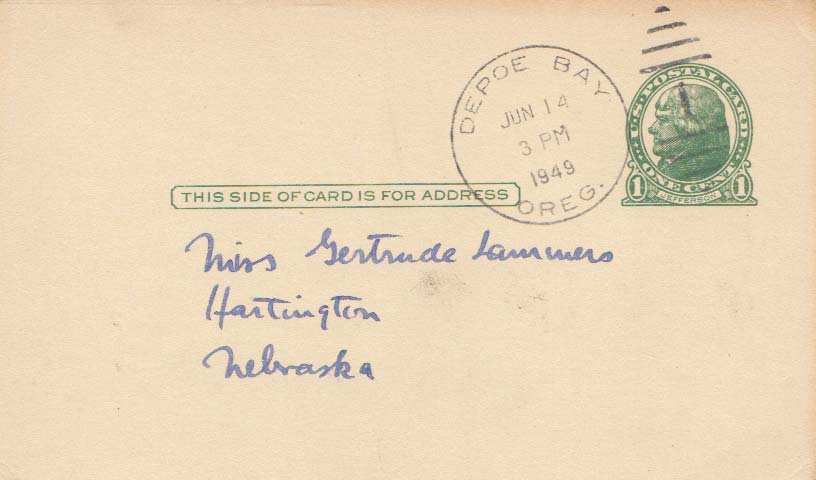 DEPOE BAY
JUN 14
3 PM
1949
OREG.
U.S. POSTAL CARD
ONE CENT
1 1
JEFFERSON
THIS SIDE OF CARD IS FOR ADDRESS
Miss Gertrude Lammers
Hartington
Nebraska